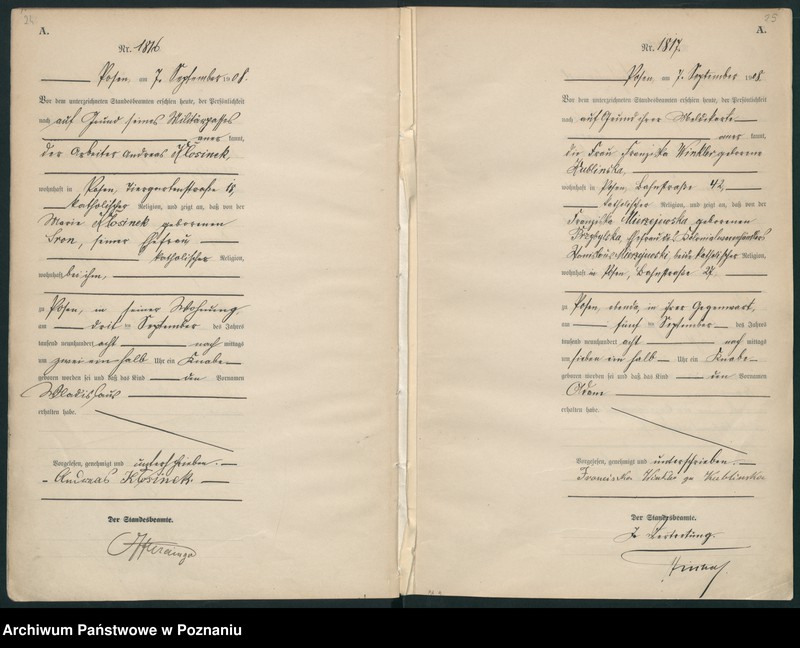 24
A.
Nr. 1816
Posen, am 7. September 1908.
Vor dem unterzeichneten Standesbeamten erschien heute, der Persönlichkeit
nach auf Grund seines Militärpasses
aner kannt,
der Arbeiter Andreas Klosinek,
wohnhaft in Posen, Tiergartenstraße 18,
katholischer Religion, und zeigt an, daß von der
Marie Klosinek geborenen
Sron, seiner Ehefrau
katholischer Religion,
wohnhaft bei ihm,
zu Posen, in seiner Wohnung,
am drit ten September des Jahres
tausend neunhundert acht nach mittags
um zwei ein halb Uhr ein Knabe
geboren worden sei und daß das Kind den Vornamen
Wladislaus
erhalten habe.
Vorgelesen, genehmigt und unterschrieben.
Andreas Klosinek
Der Standesbeamte.
25
A.
Nr. 1817.
Posen, am 7. September 1908.
Vor dem unterzeichneten Standesbeamten erschien heute, der Persönlichkeit
nach auf Grund ihrer Meldekarte
aner kannt,
die Frau Franziska Winkler geborene
Kublinska,
wohnhaft in Posen, Bahnstraße 42,
katholischer Religion, und zeigt an, daß von der
Franziska Murzejewska geborenen
Przybylska, Ehefrau des Kolonialwarenhändlers
Stanislaus Murzejewski, beide katholischer Religion,
wohnhaft in Posen, Bahnstraße 27
zu Posen, ebenda, in ihrer Gegenwart,
am fünf ten September des Jahres
tausend neunhundert acht nach mittags
um sieben ein halb Uhr ein Knabe
geboren worden sei und daß das Kind den Vornamen
Adam
erhalten habe.
Vorgelesen, genehmigt und unterschrieben.
Franciszka Winkler Kublinska
Der Standesbeamte.
In Vertretung.
Archiwum Państwowe w Poznaniu